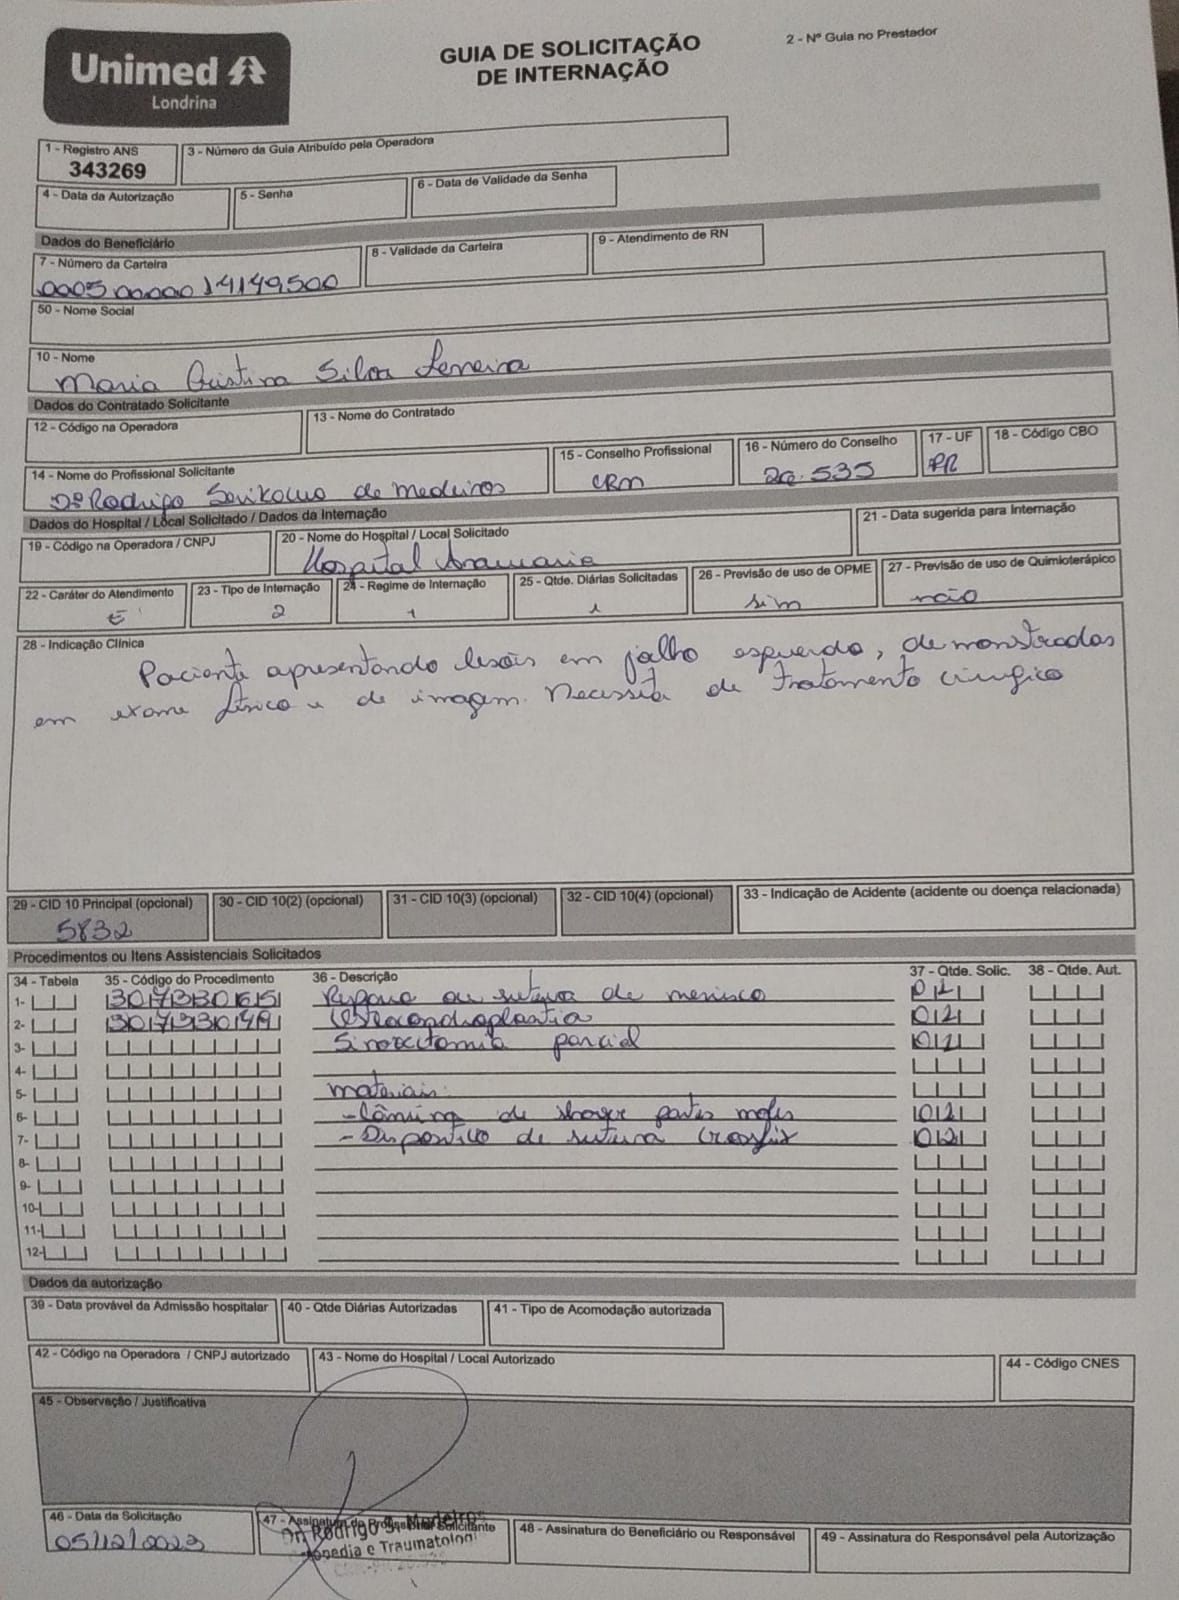 Unimed
Londrina
GUIA DE SOLICITAÇÃO
DE INTERNAÇÃO
2 - Nº Guia no Prestador
1 - Registro ANS
343269
3 - Número da Guia Atribuído pela Operadora
4 - Data da Autorização
5 - Senha
6 - Data de Validade da Senha
Dados do Beneficiário
7 - Número da Carteira
0005 00000 14149500
8 - Validade da Carteira
9 - Atendimento de RN
50 - Nome Social
10 - Nome
Maria Cristina Silva Ferreira
Dados do Contratado Solicitante
12 - Código na Operadora
13 - Nome do Contratado
14 - Nome do Profissional Solicitante
Dr Rodrigo de Medeiros
15 - Conselho Profissional
CRM
16 - Número do Conselho
20.535
17 - UF
PR
18 - Código CBO
Dados do Hospital / Local Solicitado / Dados da Internação
19 - Código na Operadora / CNPJ
20 - Nome do Hospital / Local Solicitado
Hospital Araucaria
21 - Data sugerida para Internação
22 - Caráter do Atendimento
E
23 - Tipo de Internação
2
24 - Regime de Internação
1
25 - Qtde. Diárias Solicitadas
1
26 - Previsão de uso de OPME
sim
27 - Previsão de uso de Quimioterápico
não
28 - Indicação Clínica
Paciente apresentando lesões em joelho esquerdo, demonstradas
em exame físico e de imagem. Necessita de tratamento cirurgico
29 - CID 10 Principal (opcional)
S832
30 - CID 10(2) (opcional)
31 - CID 10(3) (opcional)
32 - CID 10(4) (opcional)
33 - Indicação de Acidente (acidente ou doença relacionada)
Procedimentos ou Itens Assistenciais Solicitados
34 - Tabela
35 - Código do Procedimento
36 - Descrição
37 - Qtde. Solic.
38 - Qtde. Aut.
1- Reparo ou sutura de menisco 01
2- Osteocondroplastia 01
3- Sinovectomia parcial 01
4-
5- materiais:
6- - Lâmina de shaver partes moles 01
7- - Dispositivo de sutura crossfix
8-
9-
10-
11-
12-
Dados da autorização
39 - Data provável da Admissão hospitalar
40 - Qtde Diárias Autorizadas
41 - Tipo de Acomodação autorizada
42 - Código na Operadora / CNPJ autorizado
43 - Nome do Hospital / Local Autorizado
44 - Código CNES
45 - Observação / Justificativa
46 - Data da Solicitação
05/12/2023
47 - Assinatura do Profissional Solicitante
Dr. Rodrigo S. Medeiros
opedia e Traumatologi
48 - Assinatura do Beneficiário ou Responsável
49 - Assinatura do Responsável pela Autorização